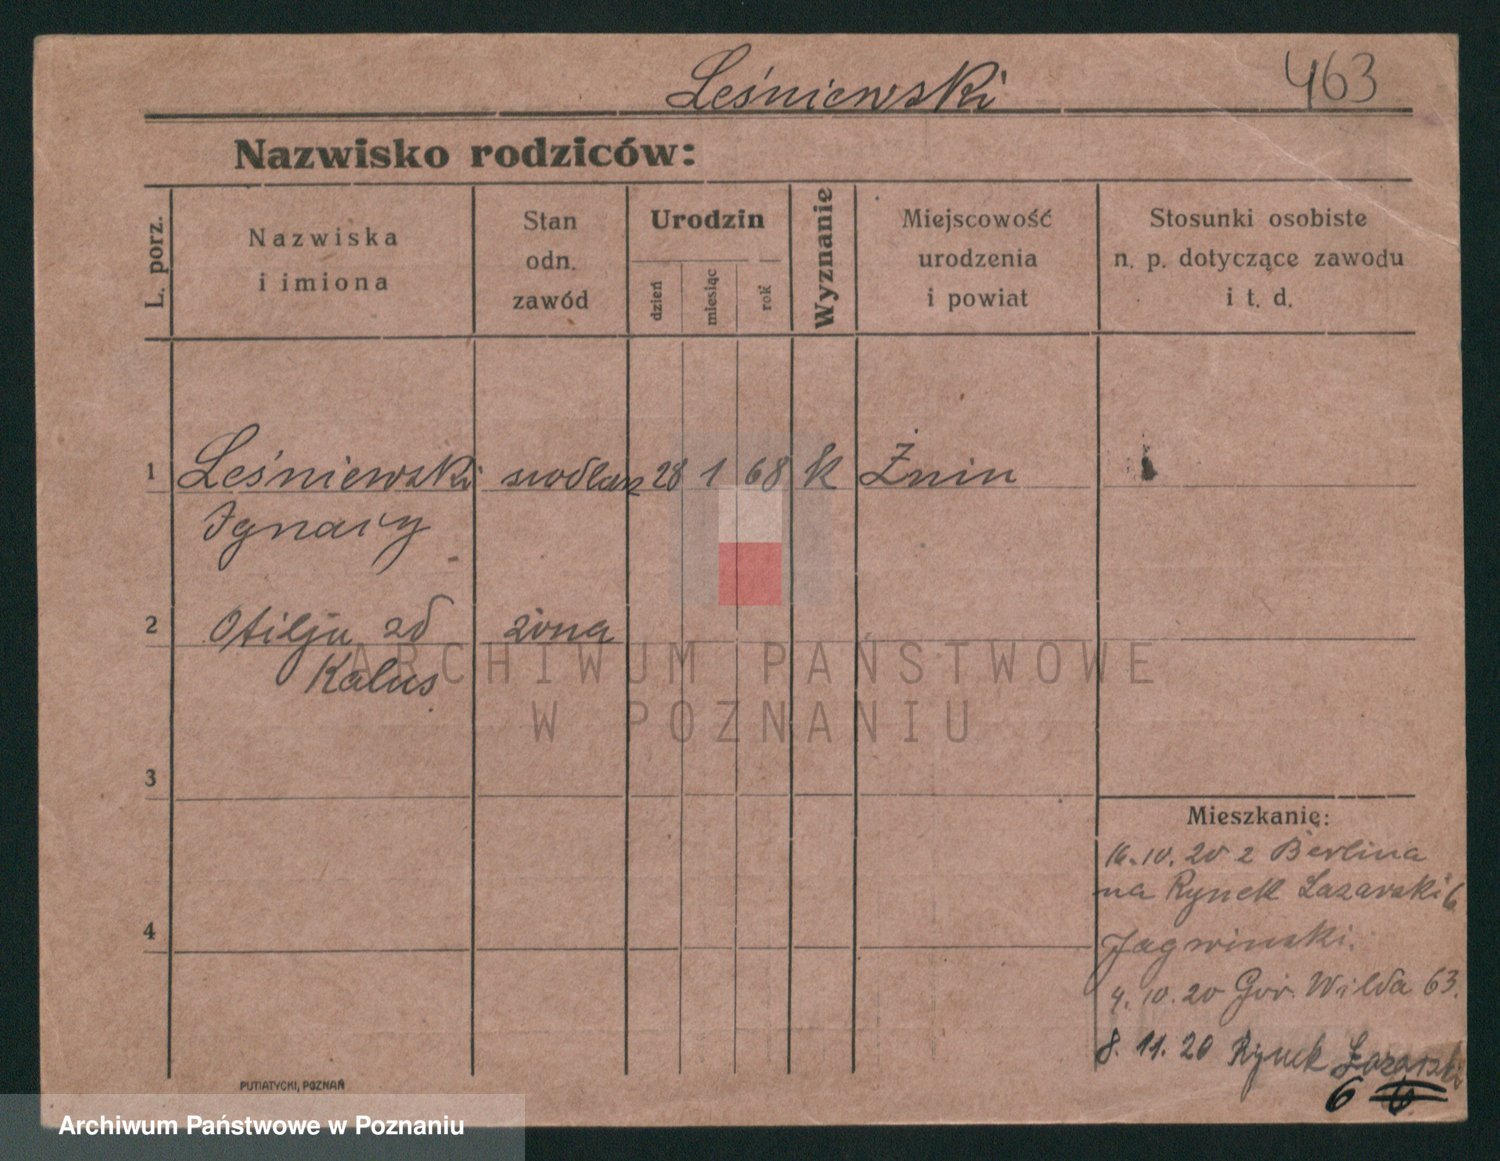 Leśniewski 463
Nazwisko rodziców:
L. porz.
Nazwiska
i imiona
Stan
odn.
zawód
Urodzin
dzień
miesiąc
rok
Wyznanie
Miejscowość
urodzenia
i powiat
Stosunki osobiste
n. p. dotyczące zawodu
i t. d.
1 Leśniewski siodlarz 28 1 68 k Żnin
Ignacy
2 Otilja zd żona
Kalus
ARCHIWUM PAŃSTWOWE
W POZNANIU
3
Mieszkanie:
16.10.20 z Berlina
na Rynek Lazarski 6
4
Jagwinski.
4.10.20 Gór. Wilda 63.
8.11.20 Rynek Łazarski
6
PUTIATYCKI, POZNAŃ
Archiwum Państwowe w Poznaniu